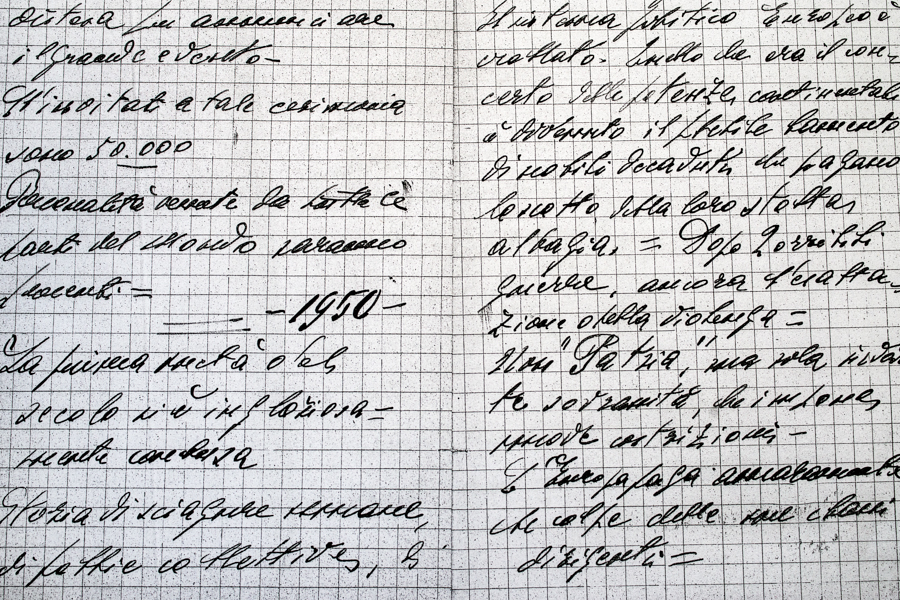 per annunciare
il grande evento-
Gl'invitati a tale cerimonia
sono 50.000
Personalità venute da tutte le
parti del mondo saranno
presenti =
- 1950 -
La prima metà del
secolo si è ingloriosa-
mente conclusa
Storia di sciagure umane,
di follie collettive, di
Il sistema politico Europeo è
crollato. Quello che era il con-
certo delle potenze continentali
è divenuto il flebile lamento
di nobili decaduti che pagano
lo scotto della loro stolta
albagia. = Dopo 2 orribili
guerre, ancora l'esalta-
zione della violenza =
Non "Patria", ma sola
te sovranità, che impone
nuove costrizioni -
E l'Europa paga amaramente
le colpe delle sue classi
dirigenti =